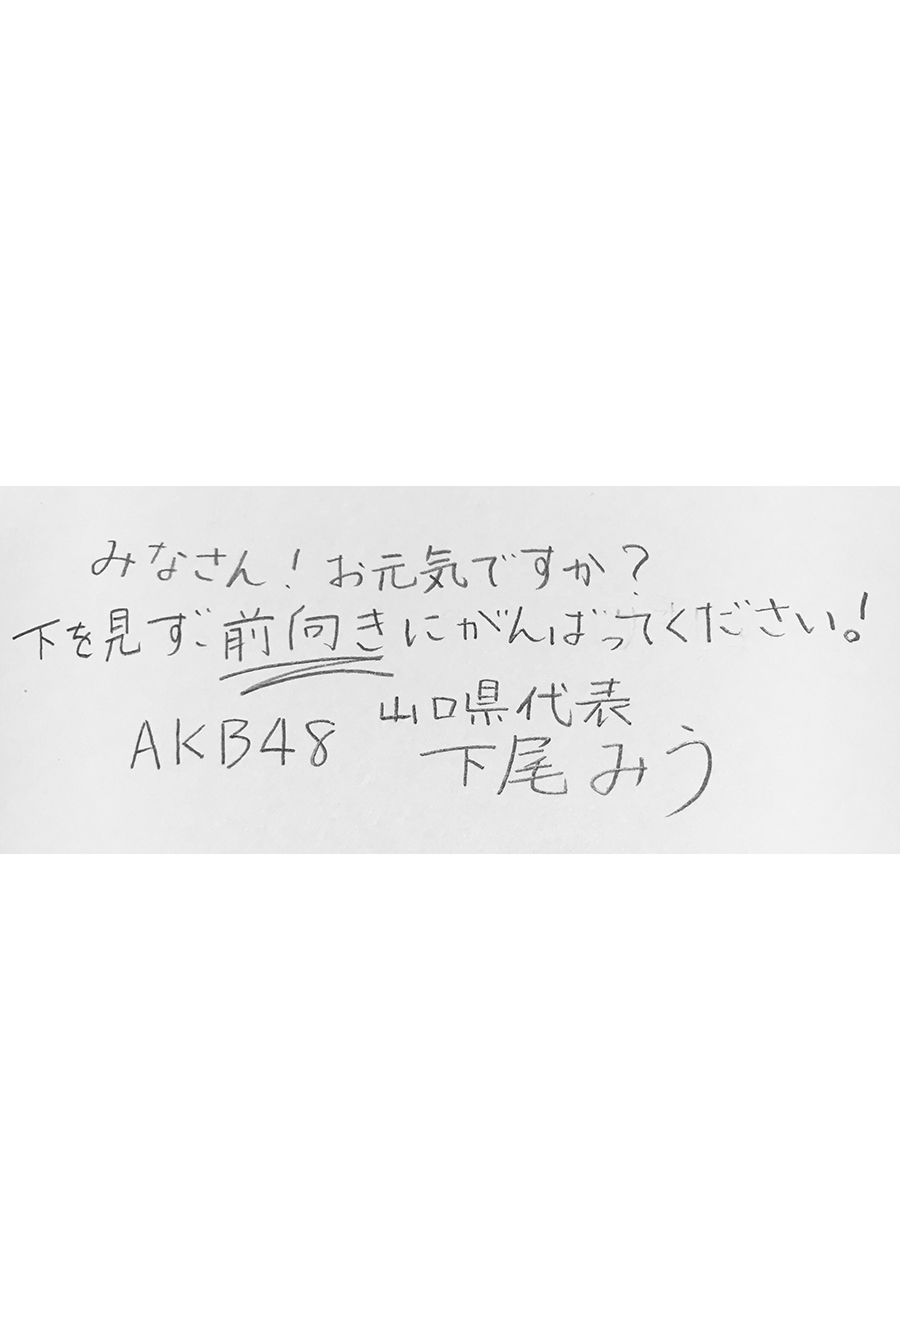 みなさん！お元気ですか？
下を見ず、前向きにがんばってください！
山口県代表
AKB48 下尾みう